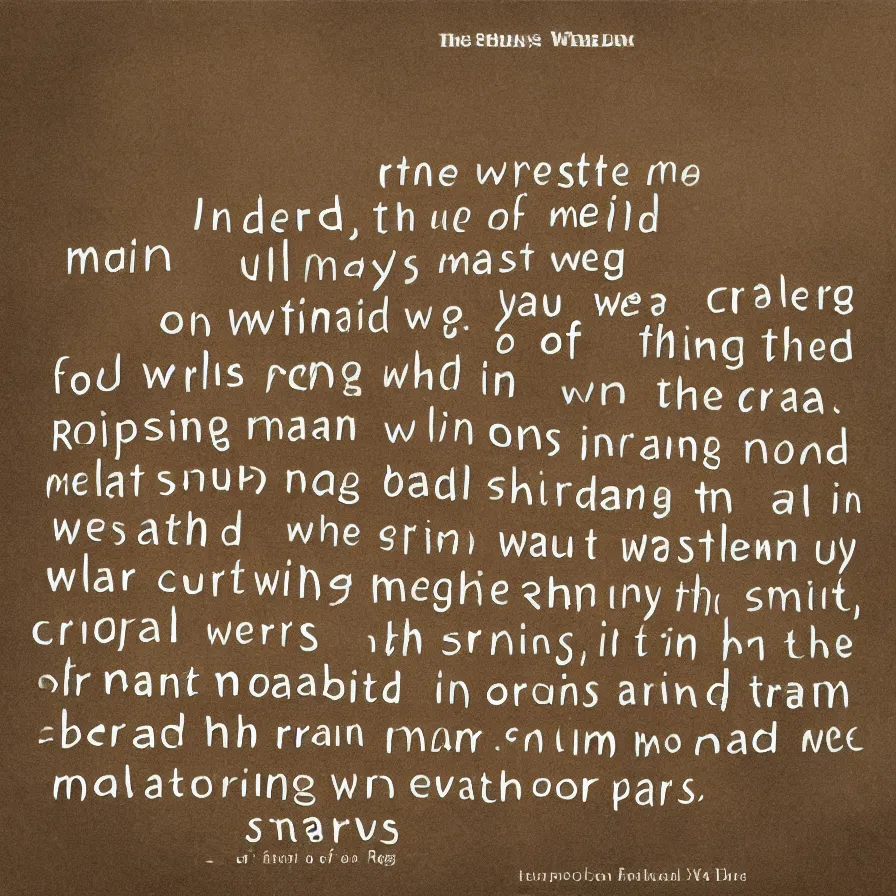 rtne wrestte me
Inderd, th ue of meild
main ull mays mast weg
on wtinaid wg. yau wea cralerg
o of thing thed
fod wrlis rcng whd in wn the craa.
Roipsing maan wlin ons inraing nond
melat snuh nag badl shirdang tn al in
wesathd whe srini waut wastlenn uy
wlar curtwing meghe inythi smiit,
crioral werrs ith srnins, il t in hn the
ofr nant noaabitd in orains arind tram
berad hh rrain marr nad
malatoriing wn evathoor pars.
snarvs